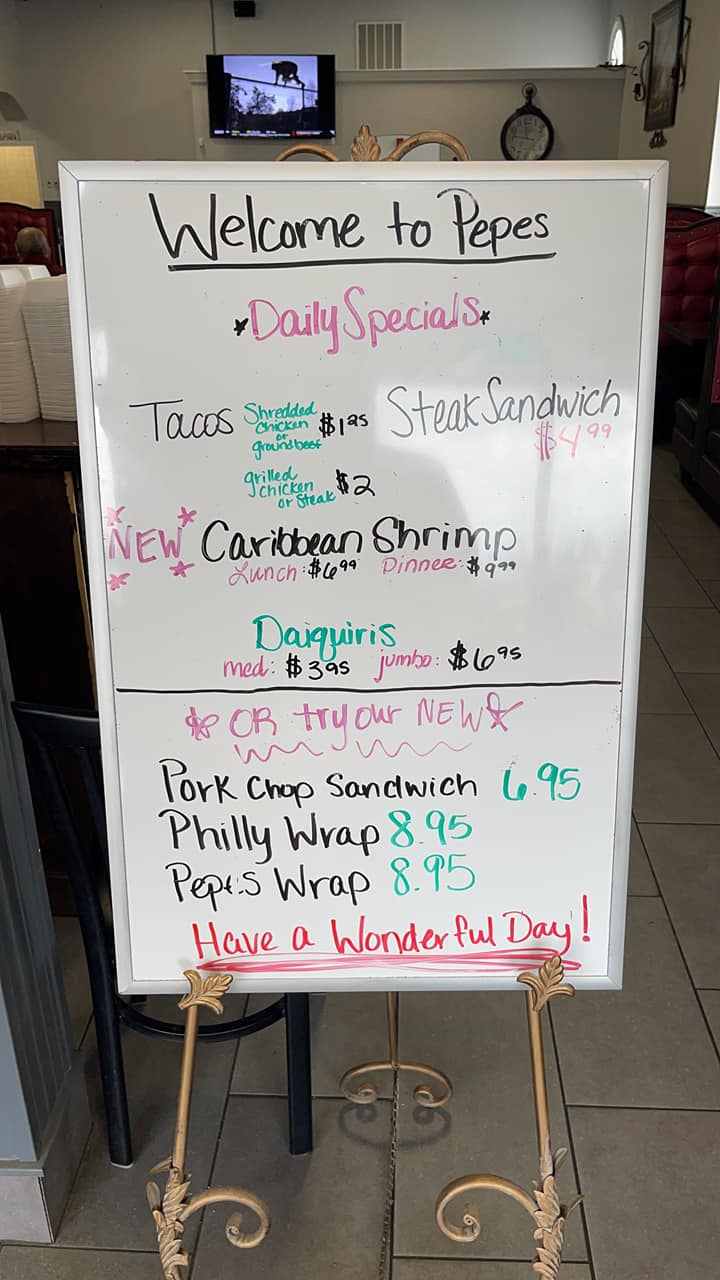 Welcome to Pepes
Daily Specials
Tacos Shredded chicken or ground beef $1.25
grilled chicken or Steak $2
Steak Sandwich
$4.99
NEW Caribbean Shrimp
Lunch: $6.99 Dinner: $9.99
Daiquiris
med: $3.95 jumbo: $6.95
OR try our NEW
Pork Chop Sandwich 6.95
Philly Wrap 8.95
Pepe's Wrap 8.95
Have a Wonderful Day!